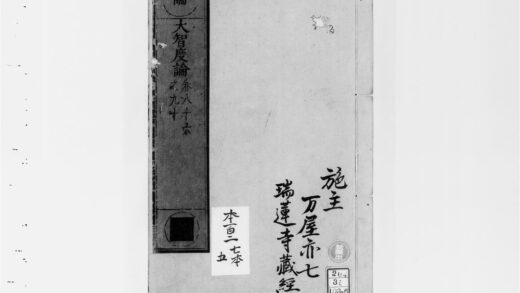 施主
万屋亦七
瑞蓮寺藏經
本百二七本
五
大智度論
卷八十六
至九十